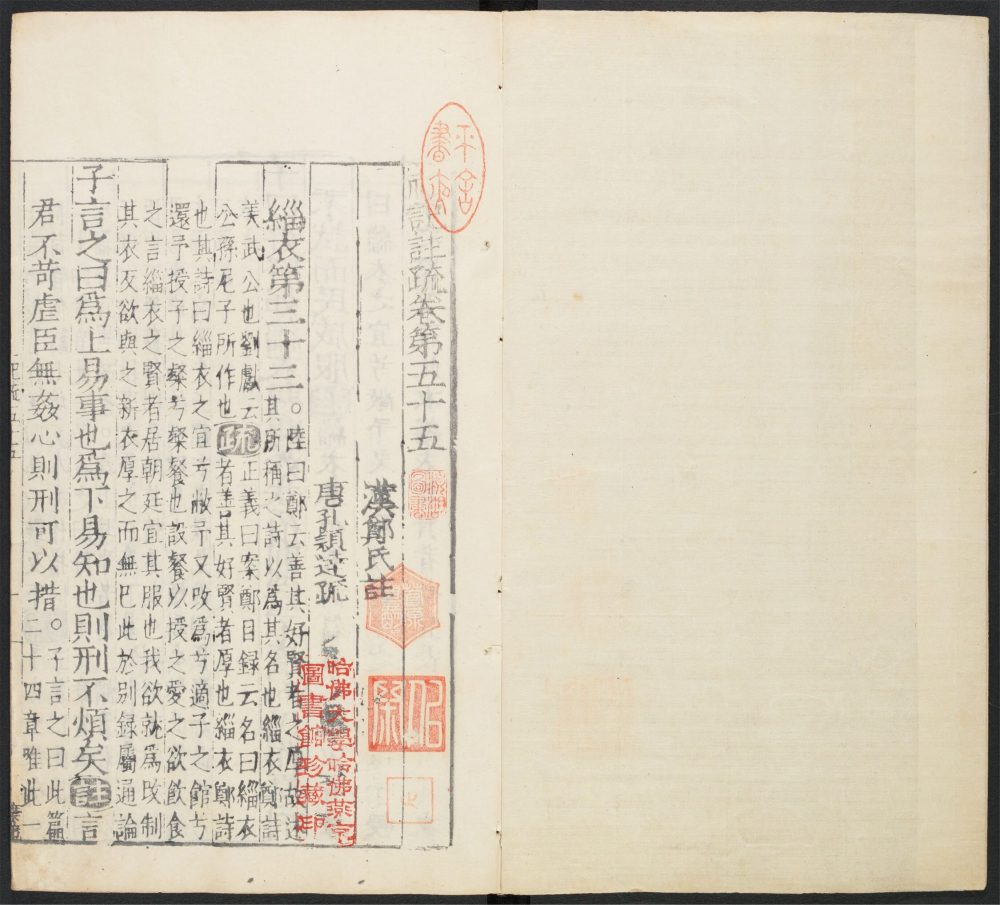 禮記註疏卷第五十五
漢鄭氏註
唐孔穎達疏
緇衣第三十三。陸曰鄭云善其好賢者之厚故述
其所稱之詩以為其名也緇衣鄭詩
美武公也劉瓛云
公孫尼子所作也疏正義曰案鄭目録云名曰緇衣
者善其好賢者厚也緇衣鄭詩
也其詩曰緇衣之宜兮敝予又改為兮適子之館兮
還予授子之粲兮粲餐也設餐以授之愛之欲飲食
之言緇衣之賢者居朝廷宜其服也我欲就為改制
其衣反欲與之新衣厚之而無已此於别録屬通論
子言之曰為上易事也為下易知也則刑不煩矣註言
君不苛虐臣無姦心則刑可以措。子言之曰此篇
二十四章唯此一
哈佛大學哈佛燕京
圖書館珍藏印